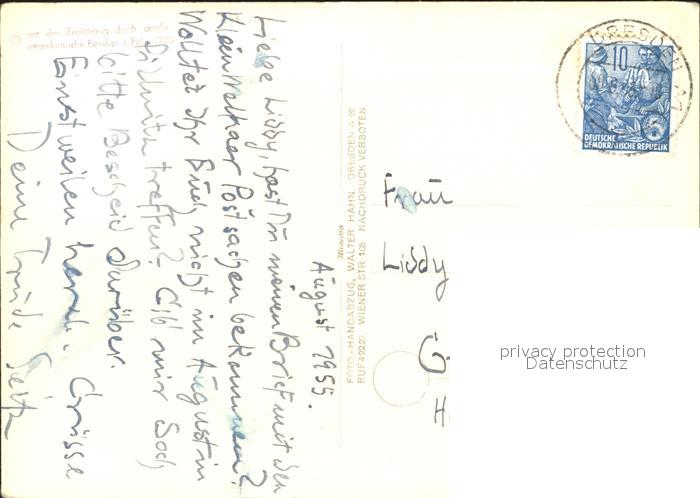 vor der Zerstörung durch anglo-
amerikanische Bomber i. Febr. 1945
August 1955.
Liebe Liddy, hast Du meinen Brief mit den
Kleinwelkaer Postsachen bekommen?
Wolltet Ihr Euch nicht im August in
Pillnitz treffen? Gib mir doch
bitte Bescheid darüber.
Einstweilen herzl. Grüsse
Deine Trude Seitz
FOTO-HANDABZUG, WALTER HAHN, DRESDEN A 20
RUF 42220 WIENER STR. 105 NACHDRUCK VERBOTEN
DRESDEN A
10
5
DEUTSCHE
DEMOKRATISCHE REPUBLIK
Frau
Liddy
G
H
privacy protection
Datenschutz